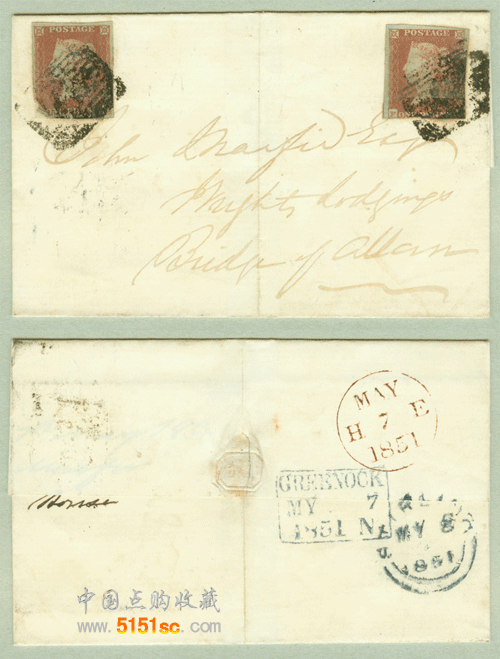 POSTAGE
POSTAGE
John Esq
Wright's Lodgings
Bridge of Allan
MAY
H 7 E
1851
GREENOCK
MY 7
1851 N
MY 8
1851
House
中国点购收藏
www.5151sc.com